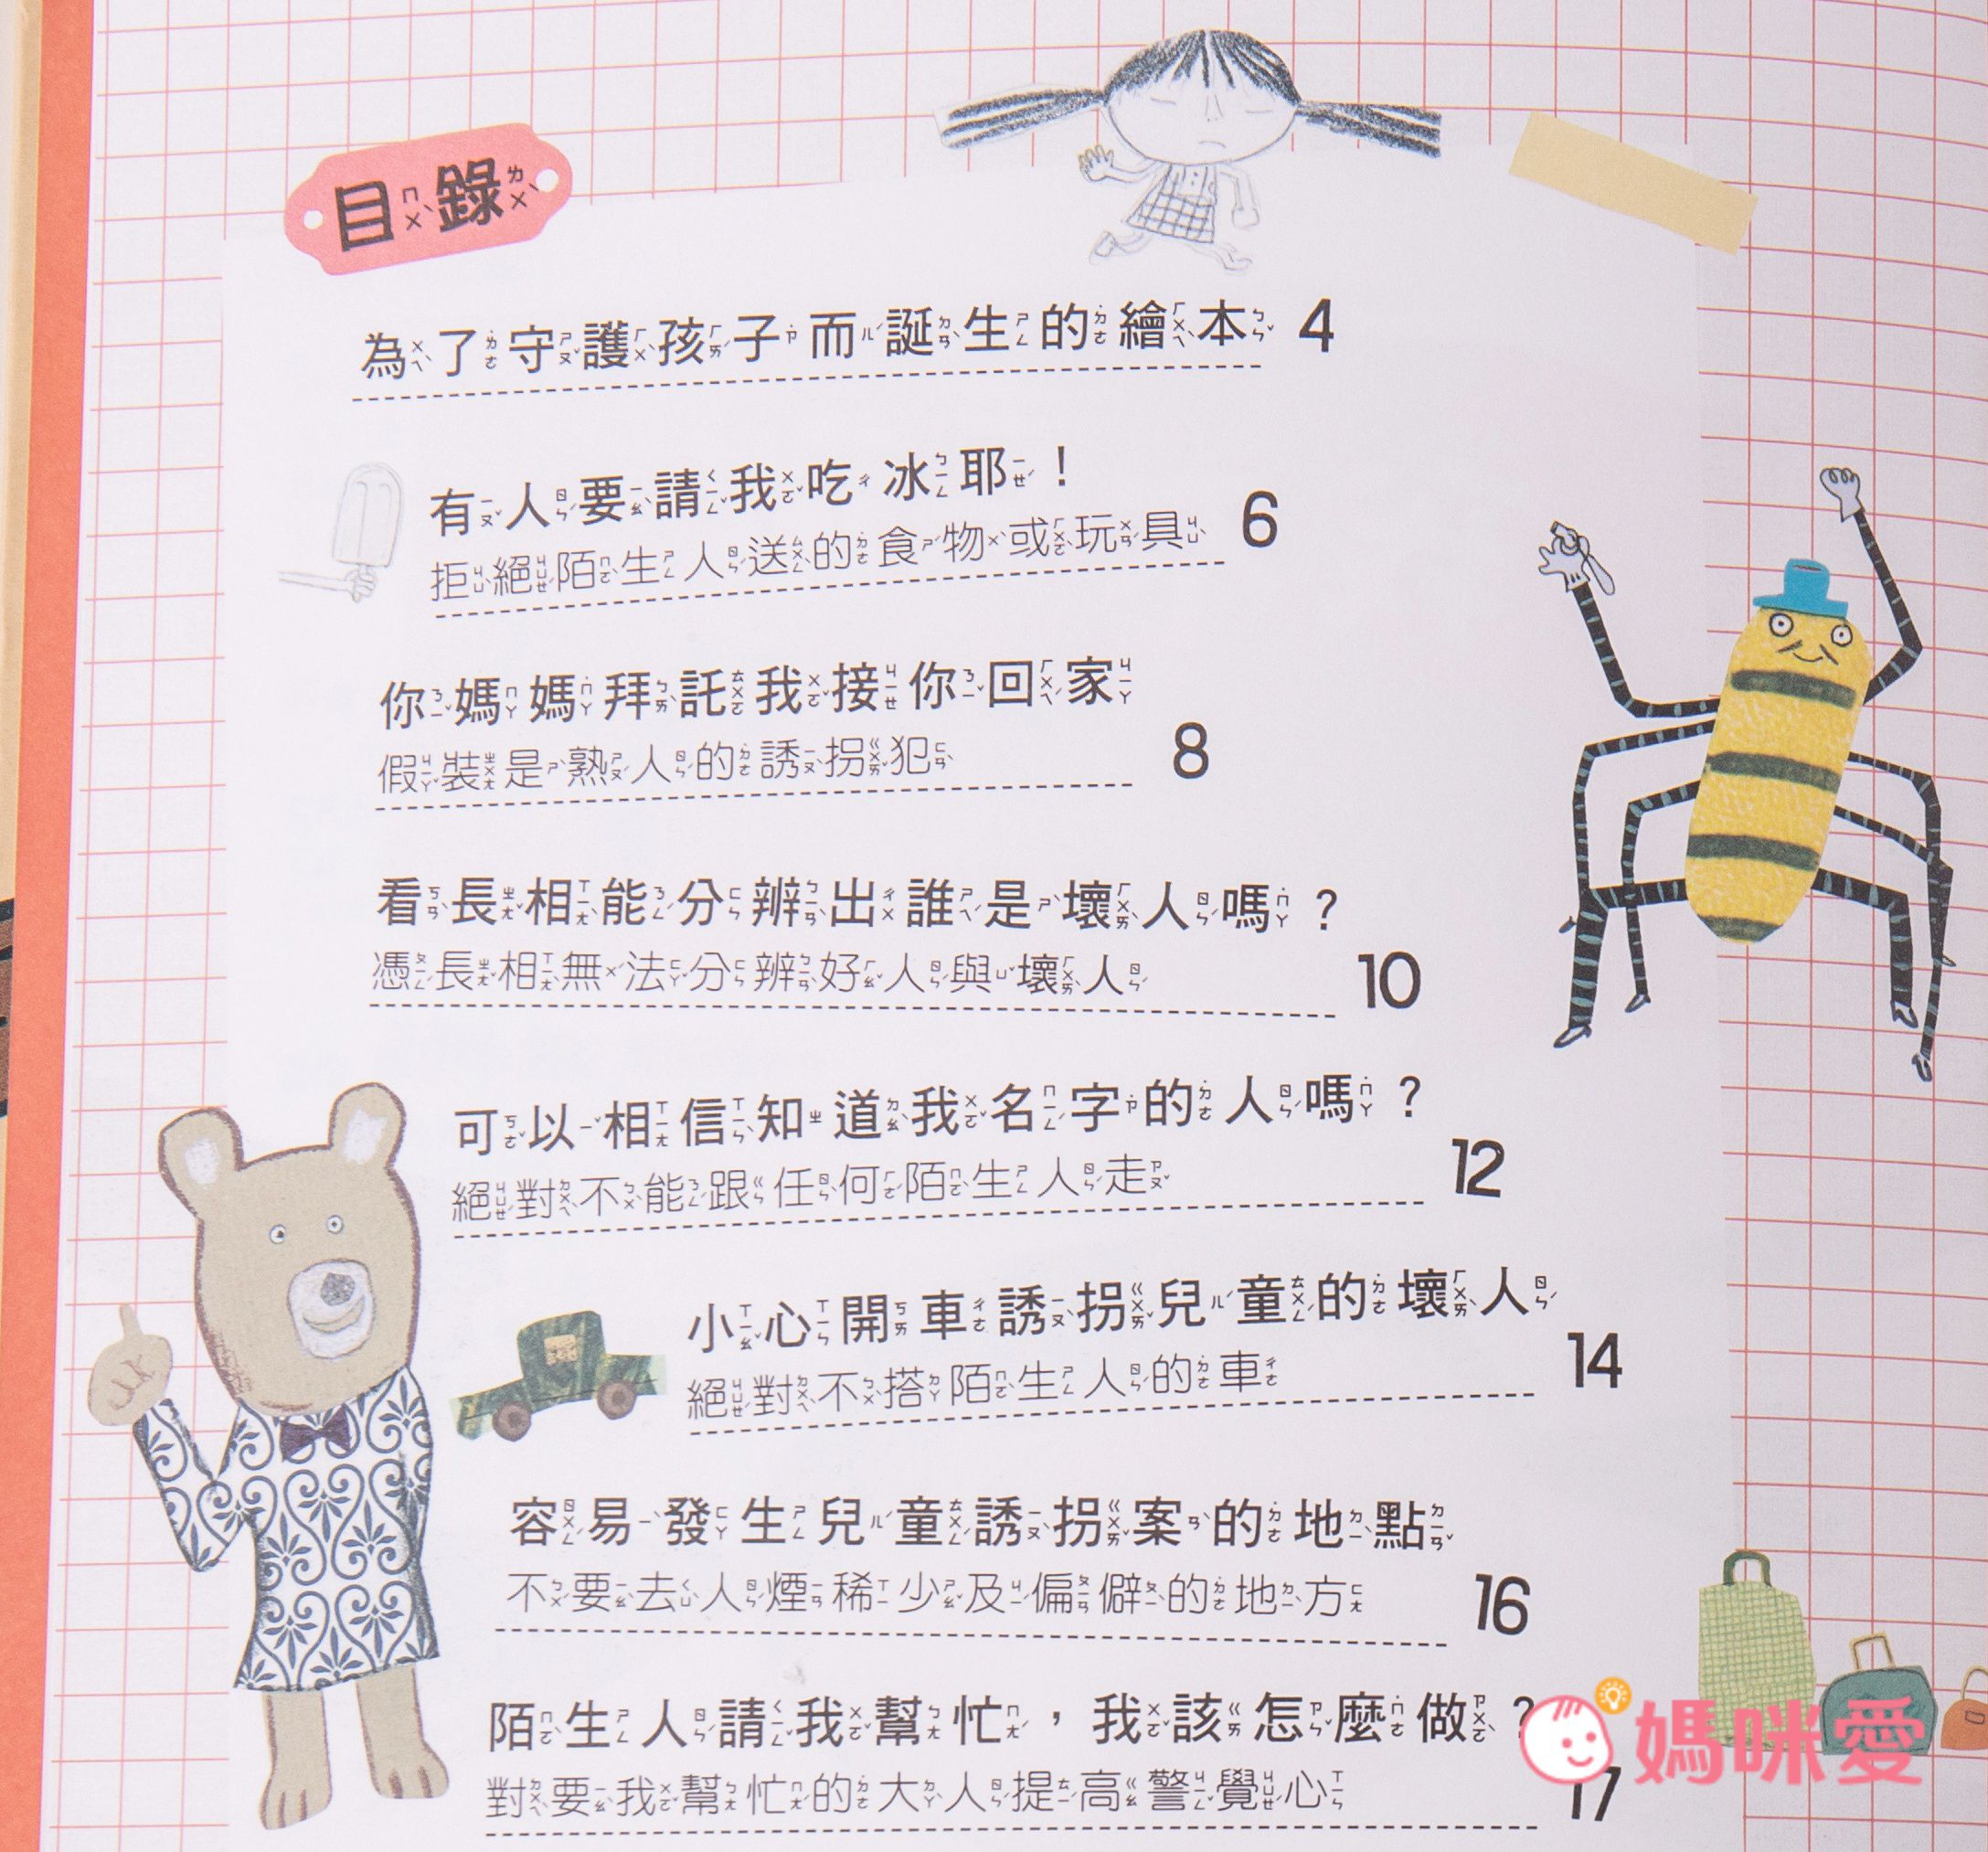 目錄
為了守護孩子而誕生的繪本 4
有人要請我吃冰耶！
拒絕陌生人送的食物或玩具 6
你媽媽拜託我接你回家
假裝是熟人的誘拐犯 8
看長相能分辨出誰是壞人嗎？
憑長相無法分辨好人與壞人 10
可以相信知道我名字的人嗎？
絕對不能跟任何陌生人走 12
小心開車誘拐兒童的壞人
絕對不搭陌生人的車 14
容易發生兒童誘拐案的地點
不要去人煙稀少及偏僻的地方 16
陌生人請我幫忙，我該怎麼做？
對要我幫忙的大人提高警覺心 17
媽咪愛